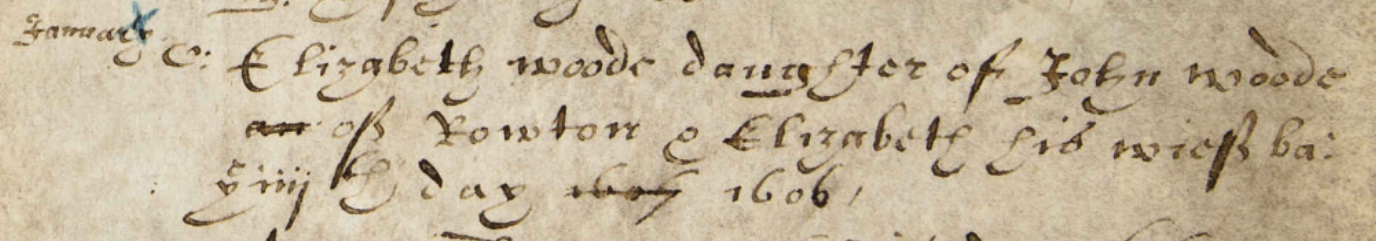 January C: Elizabeth woode daughter of John woode
an of Rowton & Elizabeth his wieff ba:
xiiij th day 1607 1606,